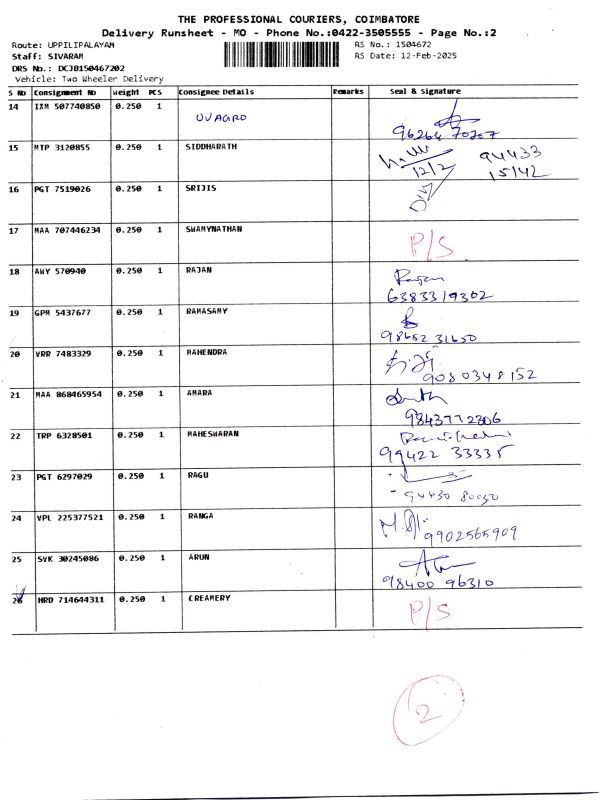 THE PROFESSIONAL COURIERS, COIMBATORE
Delivery Runsheet - MO - Phone No.:0422-3505555 - Page No.:2
Route: UPPILIPALAYAM
RS No.: 1504672
Staff: SIVARAM
RS Date: 12-Feb-2025
DRS No.: DCJB150467202
Vehicle: Two Wheeler Delivery
S No Consignment No Weight PCS Consignee Details Remarks Seal & Signature
14 IXM 507740850 0.250 1 UVAGRO
96264 70207
15 MTP 3120855 0.250 1 SIDDHARATH 94433
12/2 15142
16 PGT 7519026 0.250 1 SRIJIS
17 MAA 707446234 0.250 1 SWAMYNATHAN P/S
18 AWY 570940 0.250 1 RAJAN Rajan
6383319302
19 GPM 5437677 0.250 1 RAMASAMY
98652 31650
20 VRR 7483329 0.250 1 MAHENDRA
9080348152
21 MAA 868465954 0.250 1 AMARA
9843772306
22 TRP 6328501 0.250 1 MAHESWARAN
99422 33335
23 PGT 6297029 0.250 1 RAGU
94430 80050
24 VPL 225377521 0.250 1 RANGA
9902565909
25 SVK 30245086 0.250 1 ARUN
98400 96310
26 HRD 714644311 0.250 1 CREAMERY P/S
2